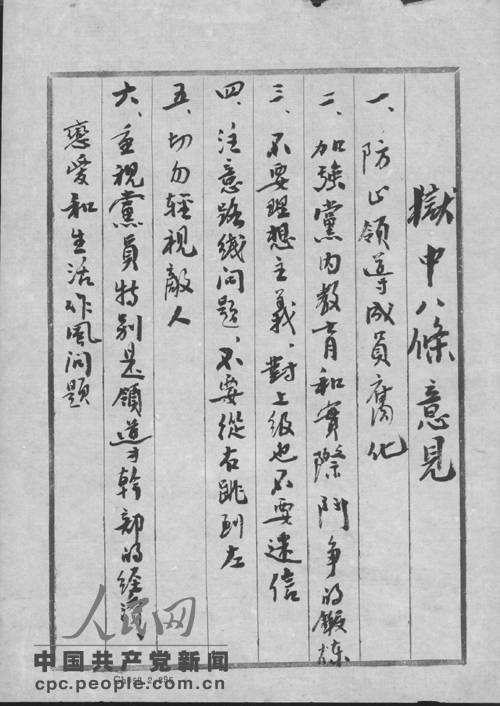 獄中八條意見
一、防止領導成員腐化
二、加強黨內教育和實際鬥争的鍛煉
三、不要理想主義，對上級也不要迷信
四、注意路线问题，不要從右跳到左
五、切勿輕視敵人
六、重視黨員特别是領導幹部的经濟
戀愛和生活作風问题
人民网
中国共产党新闻
cpc.people.com.cn